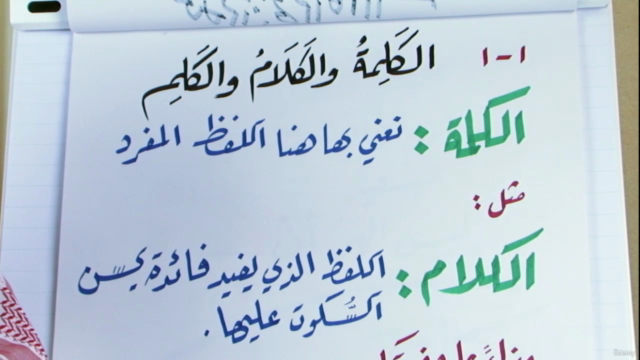 ١-١ الكَلِمةُ والكَلَامُ والكَلِم
الكلمة : نعني بها هنا اللفظ المفرد
مثل :
الكلام : اللفظ الذي يفيد فائدة يحسن
السُّكوت عليها.